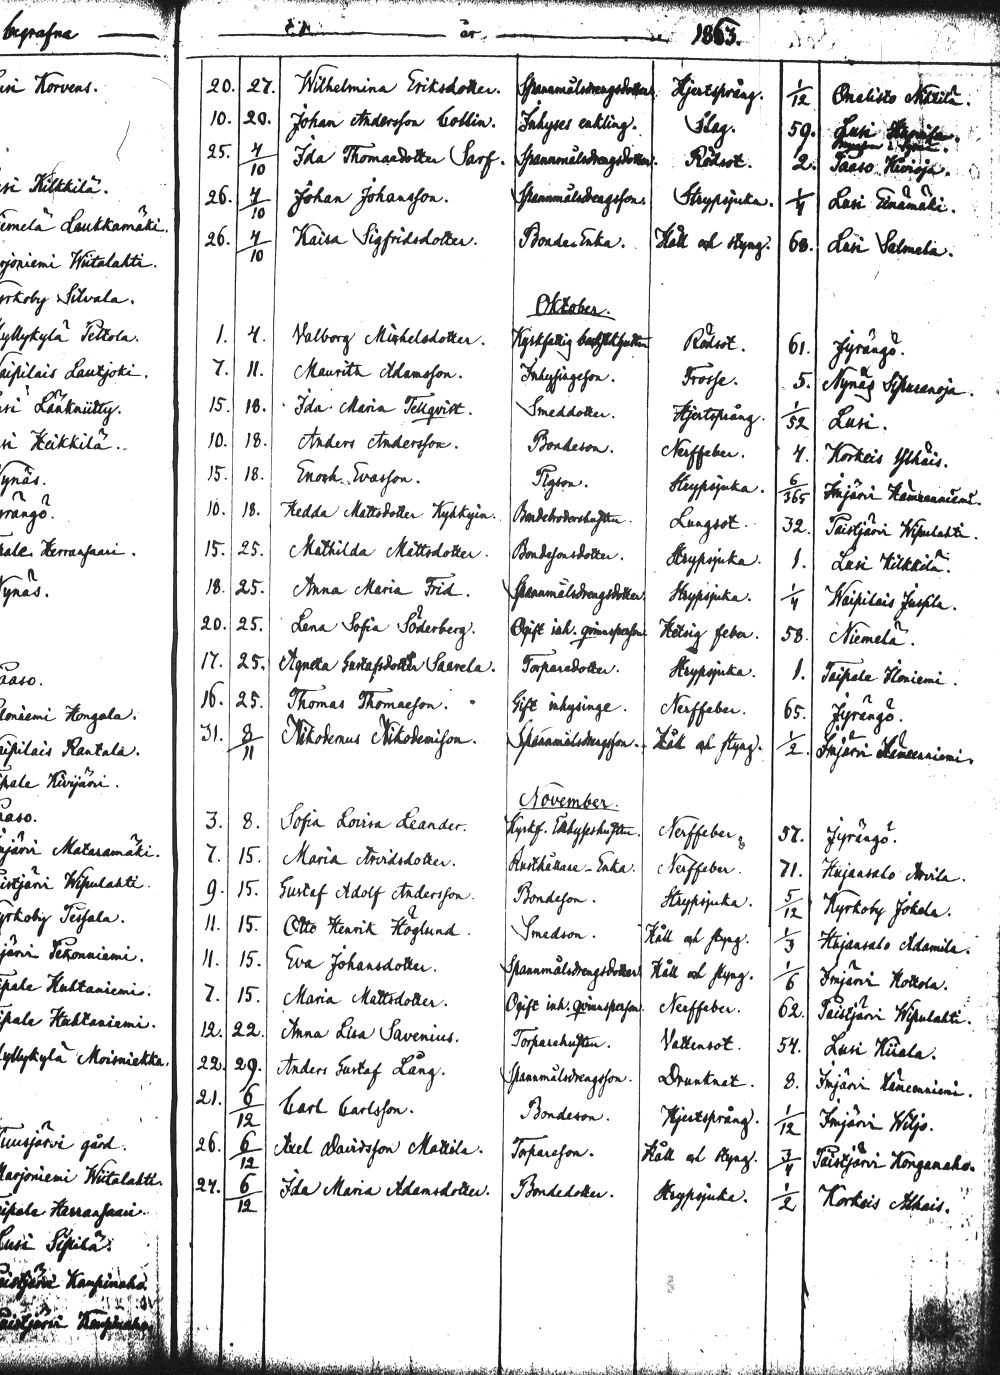 begrafna
år 1863.
usi Korvens.
usi Kilkkilä.
iemelä Laukkamäki.
arjoniemi Wiitalahti.
yrkoby Silvala.
yllykylä Peltola.
aipilais Lautjoki.
usi Länkniitty.
usi Heikkilä.
ynäs.
yrängö.
ipale Herransaari.
ynäs.
aaso.
loniemi Hongala.
aipilais Rantala.
ipale Kivijärvi.
aaso.
mjärvi Mataramäki.
aistjärvi Wipulahti.
yrkoby Tessala.
mjärvi Pekonniemi.
ipale Huhtaniemi.
ipale Huhtaniemi.
yllykylä Moisniekka.
uusjärvi gård.
arjoniemi Wiitalahti.
ipale Herransaari.
usi Sipilä.
aistjärvi Kaupinaho.
aistjärvi Kaupinaho.
20. 27. Wilhelmina Eriksdotter. Spannmålsdrengsdotter. Hjertsprång. 1/12 Onalisto Nikkilä.
10. 20. Johan Andersson Collin. Inhyses enkling. Slag. 59. Lusi
25. 4/10 Ida Thomasdotter Sarf. Spannmålsdrengsdotter. Rödsot. 2. Paaso Kivioja.
26. 4/10 Johan Johansson. Spannmålsdrengsson. Strypsjuka. 1/4 Lusi Einämäki.
26. 4/10 Kaisa Sigfridsdotter. Bonde-Enka. Håll och styng. 68. Lusi Salmela.
Oktober.
1. 4. Valborg Michelsdotter. Kyrkfattig Rödsot. 61. Jyrängö.
7. 11. Maurits Adamsson. Inhysingeson. Frosse. 5. Nynäs Sipuranoja.
15. 18. Ida Maria Tellqvist. Smeddotter. Hjertsprång. 1/52 Lusi.
10. 18. Anders Andersson. Bondeson. Nerffeber. 4. Korkeis Ylhäis.
15. 18. Enok Evasson. Pigson. Strypsjuka. 6/365 Imjärvi Hämeenniemi.
10. 18. Hedda Mattsdotter Kyhkyin. Bondebrodershustru. Lungsot. 32. Paistjärvi Wipulahti.
15. 25. Mathilda Mattsdotter. Bondesonsdotter. Strypsjuka. 1. Lusi Kilkkilä.
18. 25. Anna Maria Frid. Spannmålsdrengsdotter. Strypsjuka. 1/4 Waipilais Jussila.
20. 25. Lena Sofia Söderberg. Ogift inh. qvinnsperson. Hetsig feber. 58. Niemelä.
17. 25. Agneta Gustafsdotter Saarela. Torparedotter. Strypsjuka. 1. Taipale Iloniemi.
16. 25. Thomas Thomasson. Gift inhysinge. Nerffeber. 65. Jyrängö.
31. 8/11 Nikodemus Nikodemison. Spannmålsdrengsson. Håll och styng. 1/2 Imjärvi Hämeenniemi.
November.
3. 8. Sofia Lovisa Leander. Kyrkf. Inhyseshustru. Nerffeber. 57. Jyrängö.
7. 15. Maria Arvidsdotter. Rusthållare-Enka. Nerffeber. 71. Hujansalo Arvila.
9. 15. Gustaf Adolf Andersson. Bondeson. Strypsjuka. 5/12 Kyrkoby Jokela.
11. 15. Otto Henrik Höglund. Smedson. Håll och styng. 1/3 Hujansalo Adamila.
11. 15. Eva Johansdotter. Spannmålsdrengsdotter. Håll och styng. 1/6 Imjärvi Hottola.
7. 15. Maria Mattsdotter. Ogift inh. qvinnsperson. Nerffeber. 62. Paistjärvi Wipulahti.
12. 22. Anna Lisa Savenius. Torparehustru. Vattensot. 54. Lusi Hiiala.
22. 29. Anders Gustaf Lång. Spannmålsdrengsson. Drunknat. 8. Imjärvi Hämeenniemi.
21. 6/12 Carl Carlsson. Bondeson. Hjertsprång. 1/12 Imjärvi Wiljo.
26. 6/12 Axel Davidsson Mattila. Torpareson. Håll och styng. 3/4 Paistjärvi Konganaho.
27. 6/12 Ida Maria Adamsdotter. Bondedotter. Strypsjuka. 1/2 Korkeis Alhais.